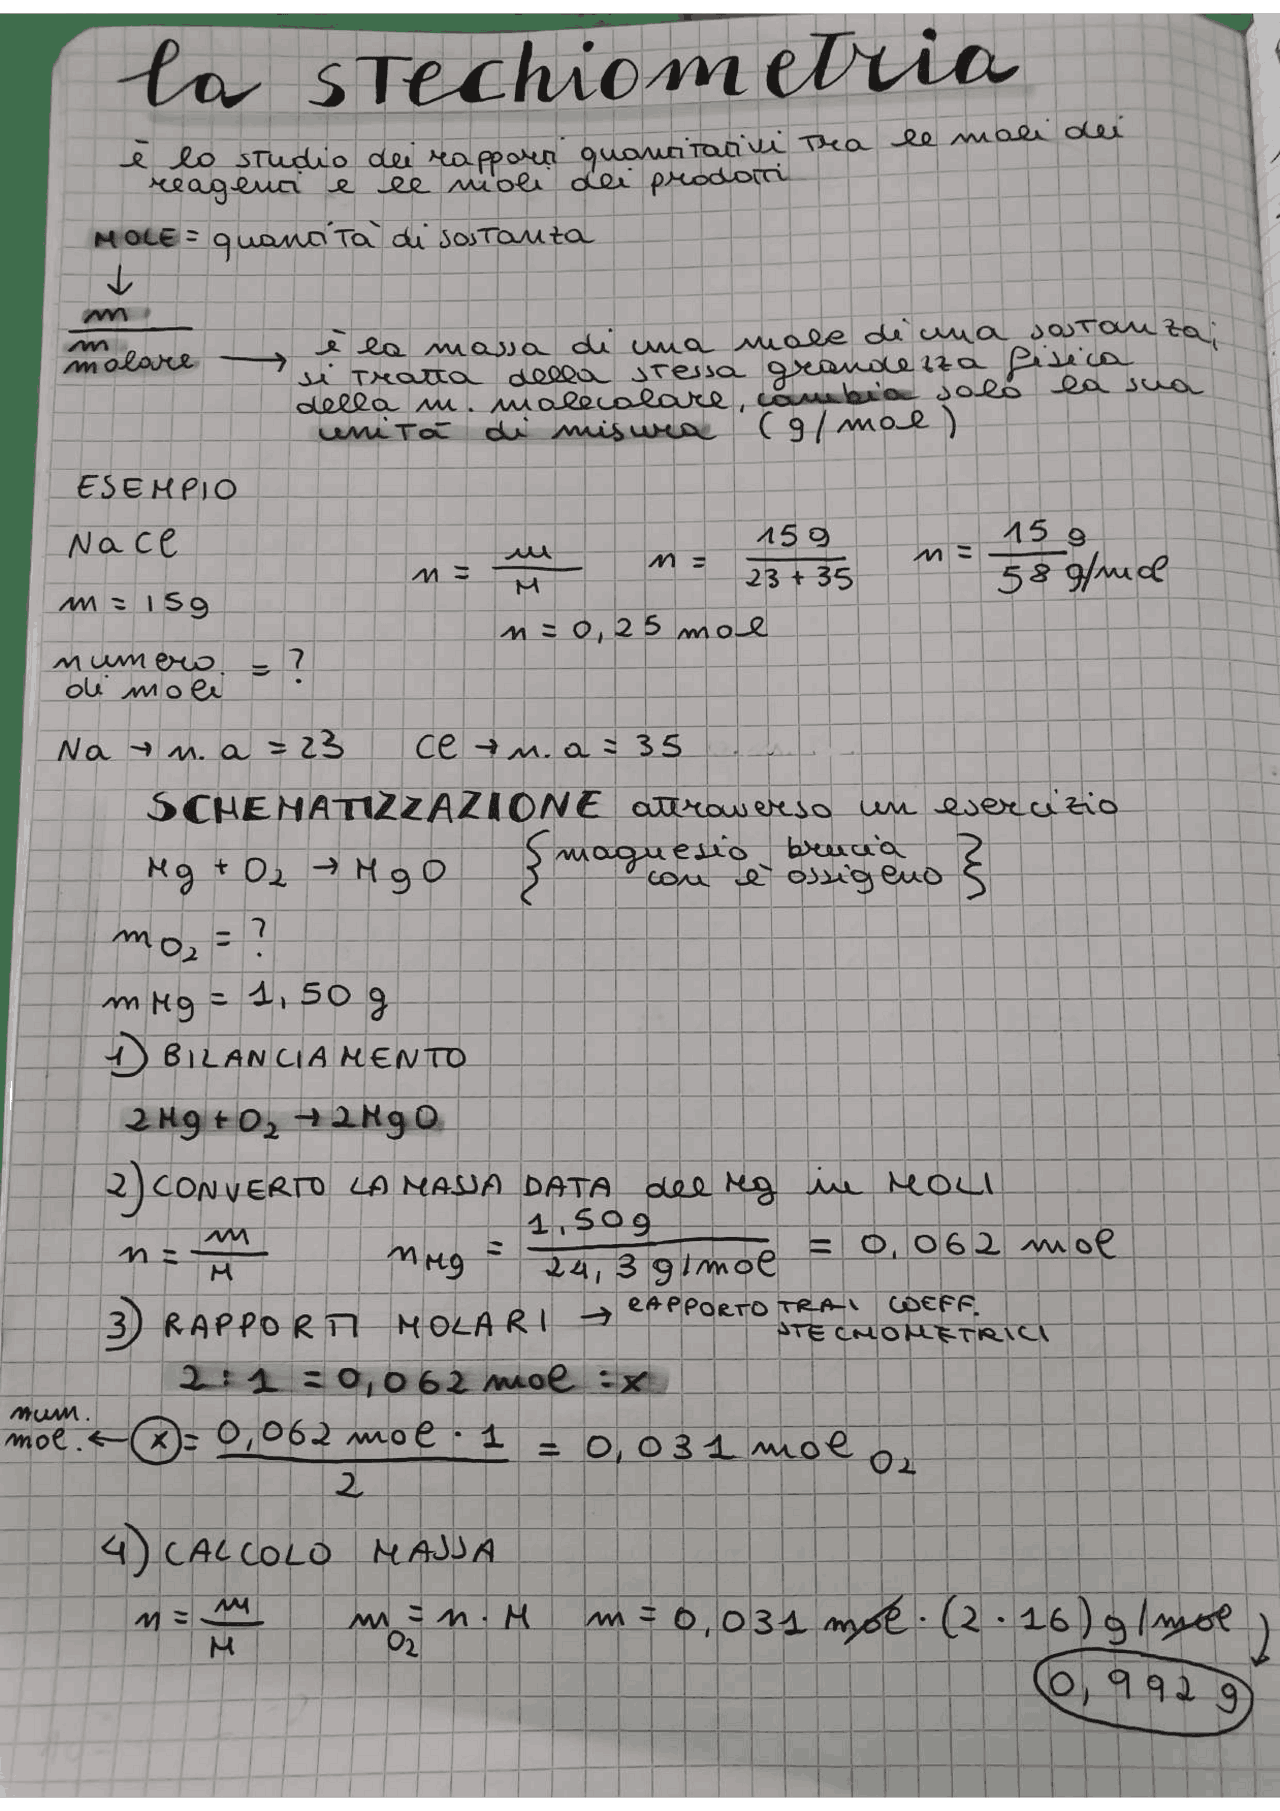 la stechiometria
è lo studio dei rapporti quantitativi tra le moli dei
reagenti e le moli dei prodotti
MOLE = quantità di sostanza
↓
m
m
molare → è la massa di una mole di una sostanza;
si tratta della stessa grandezza fisica
della m. molecolare, cambia solo la sua
unità di misura (g/mol)
ESEMPIO
NaCl
m = 15g
numero
di moli = ?
n = m/M n = 15g/23+35 n = 15 g/58 g/mol
n = 0,25 mol
Na → n. a = 23 Cl → n. a = 35
SCHEMATIZZAZIONE attraverso un esercizio
Mg + O₂ → MgO {magnesio brucia
con l'ossigeno}
m O₂ = ?
m Mg = 1,50 g
1) BILANCIAMENTO
2Mg + O₂ → 2MgO
2) CONVERTO LA MASSA DATA del Mg in MOLI
n = m/M n Mg = 1,50g/24,3 g/mol = 0,062 mol
3) RAPPORTI MOLARI → RAPPORTO TRA I COEFF.
STECHIOMETRICI
2 : 1 = 0,062 mol : x
num.
mol. ← x = 0,062 mol · 1/2 = 0,031 mol O₂
4) CALCOLO MASSA
n = m/M m O₂ = n · M m = 0,031 mol · (2 · 16) g/mol
0,992 g